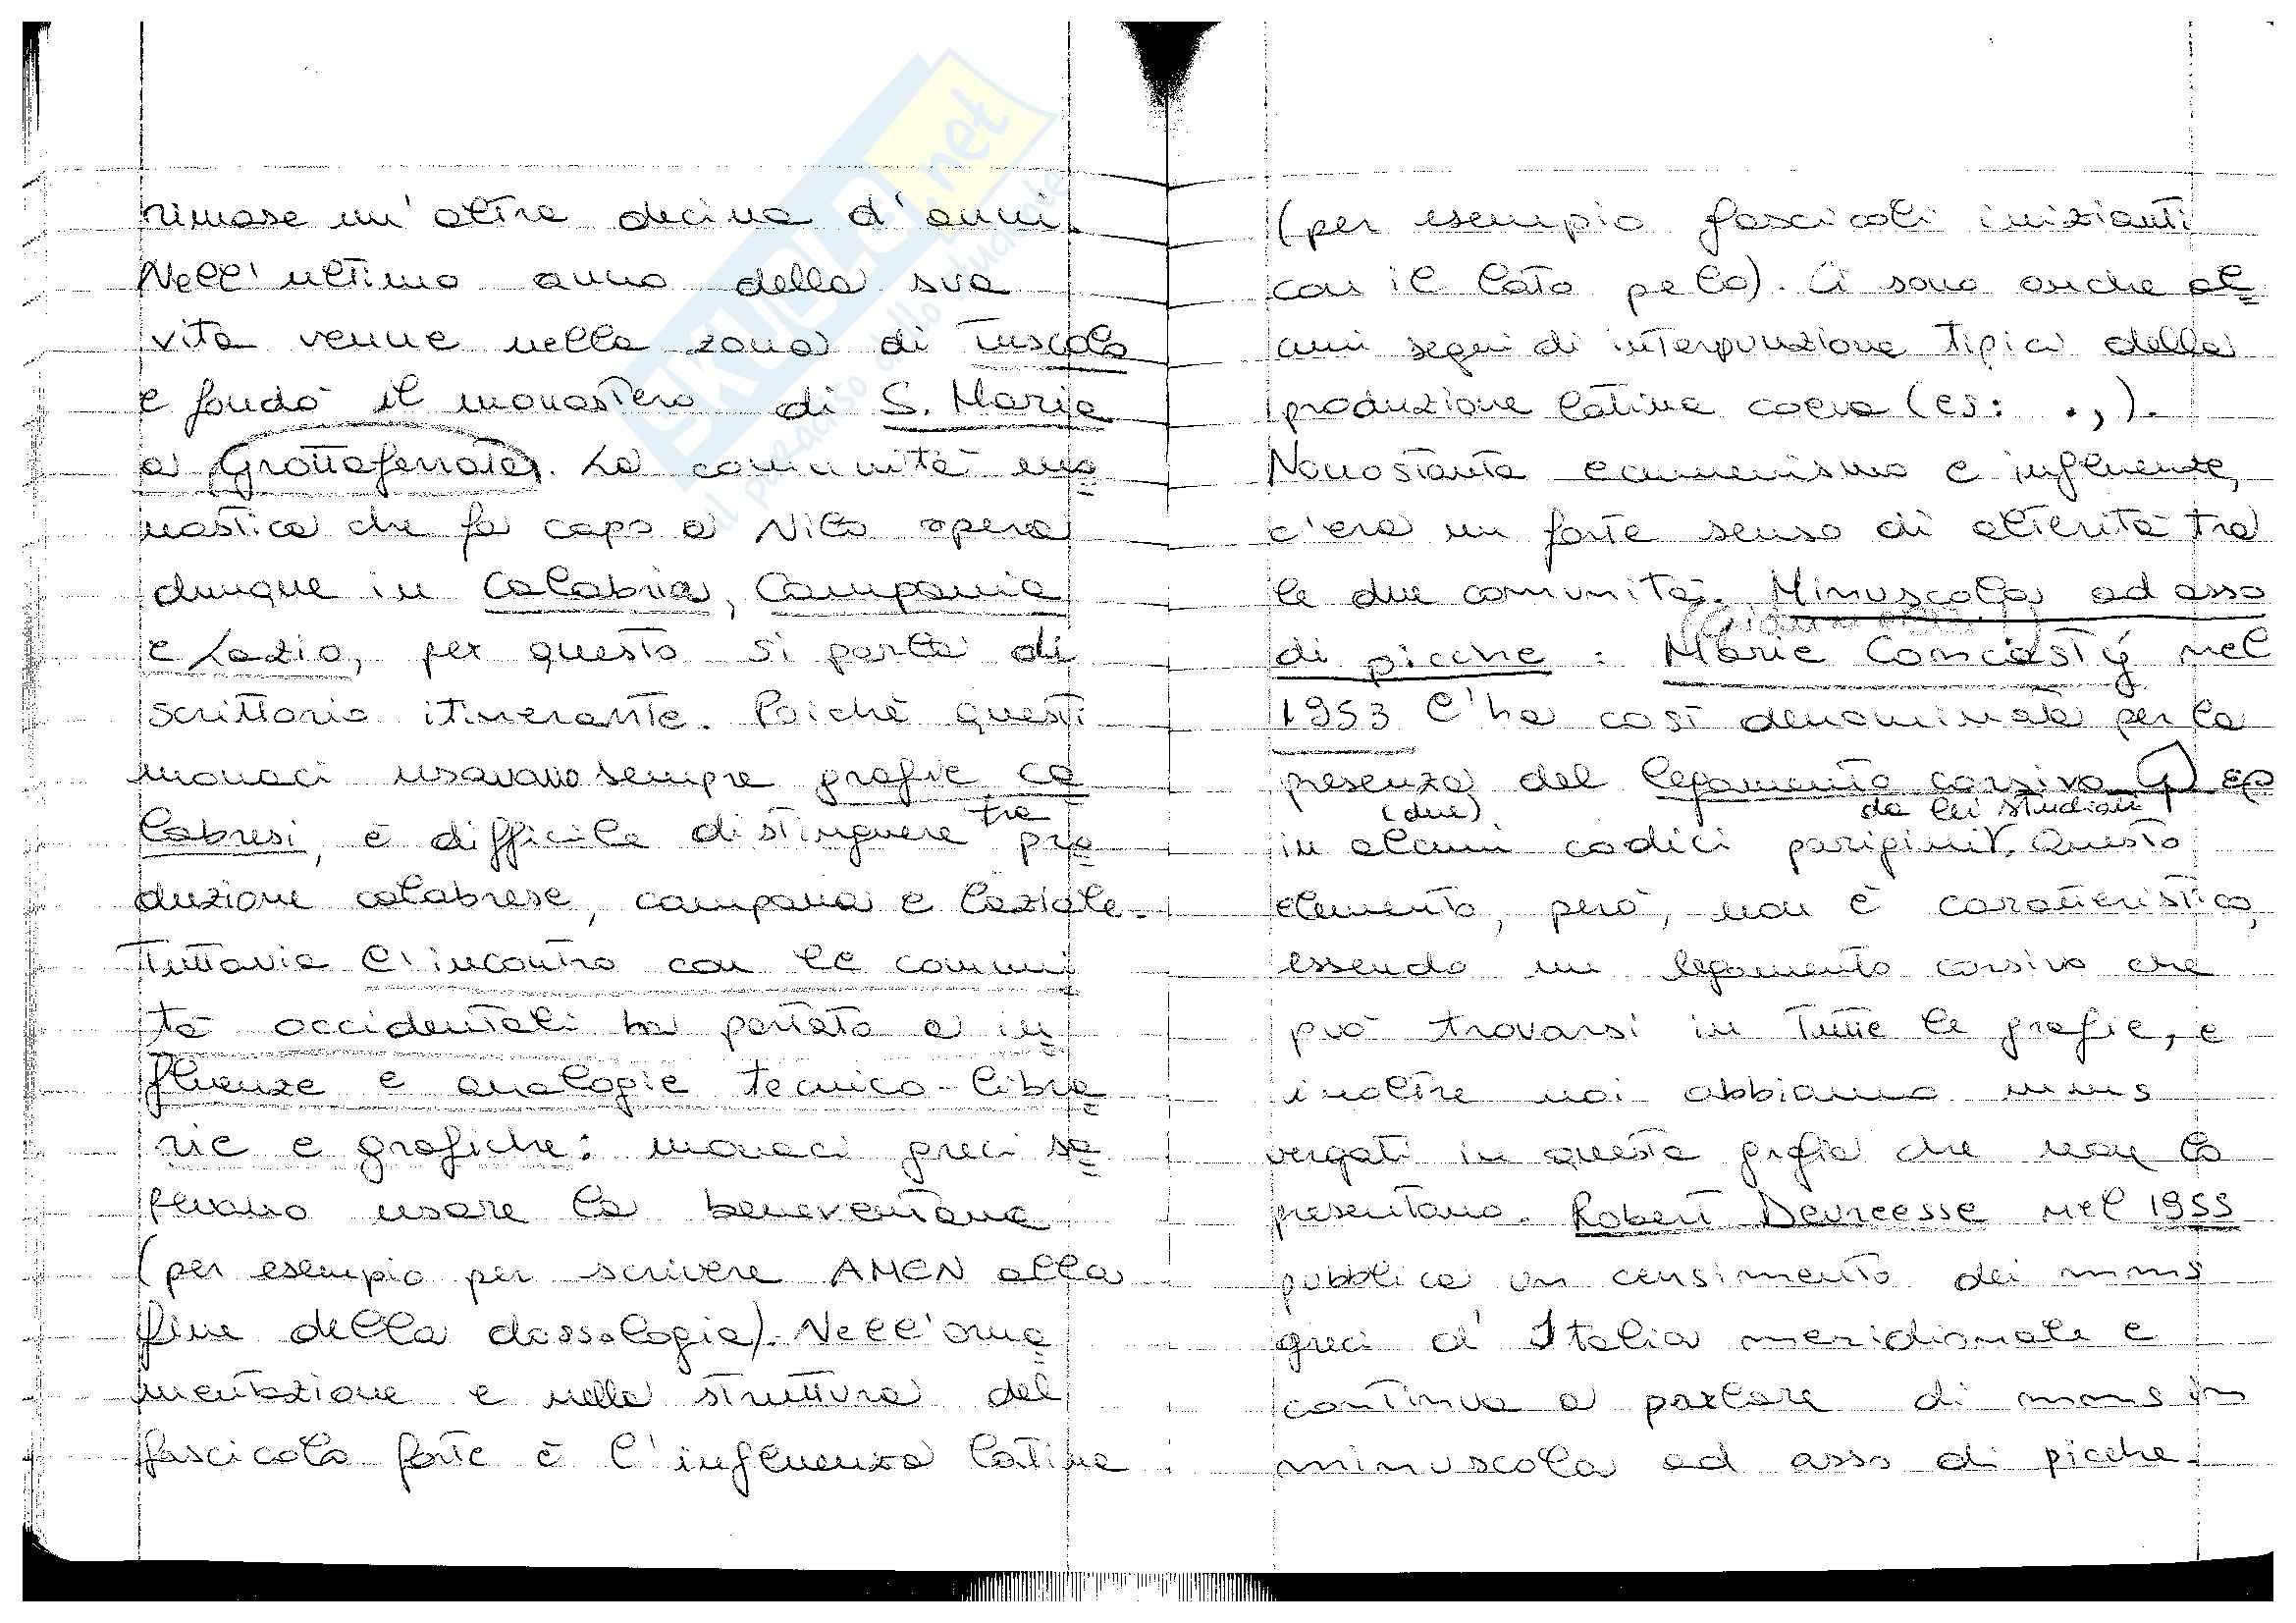 rimase un'altra decina d'anni.
Nell'ultimo anno della sua
vita venne nella zona di Tuscolo
e fondò il monastero di S. Maria
a Grottaferrata. La comunità mo
nastica che fa capo a Nilo opera
dunque in Calabria, Campania
e Lazio, per questo si parla di
scrittorio itinerante. Poiché questi
monaci usavano sempre grafie ca
labresi, è difficile distinguere tra pro
duzione calabrese, campana e laziale.
Tuttavia l'incontro con le comuni
tà occidentali ha portato a in
fluenze e analogie tecnico-libra
rie e grafiche: monaci greci sa
pevano usare la beneventana
(per esempio per scrivere AMEN alla
fine della dossologia). Nell'orna
mentazione e nella struttura del
fascicolo forte è l'influenza latina
(per esempio fascicoli inizianti
con il lato pelo). Ci sono anche al
cuni segni di interpunzione tipici della
produzione latina coeva (es: . , ).
Nonostante ecumenismo e influenze,
c'era un forte senso di alterità tra
le due comunità. Minuscola ad asso
di picche: Marie Concasty nel
1953 l'ha così denominata per la
presenza del legamento corsivo ερ
(due) da lei studiati
in alcuni codici parigini. Questo
elemento, però, non è caratteristico,
essendo un legamento corsivo che
può trovarsi in tutte le grafie, e
inoltre noi abbiamo mms
vergati in questa grafia che non lo
presentano. Robert Devreesse nel 1955
pubblica un censimento dei mms
greci d'Italia meridionale e
continua a parlare di mms in
minuscola ad asso di picche.
SKUOLA.net
al paradiso dello studente